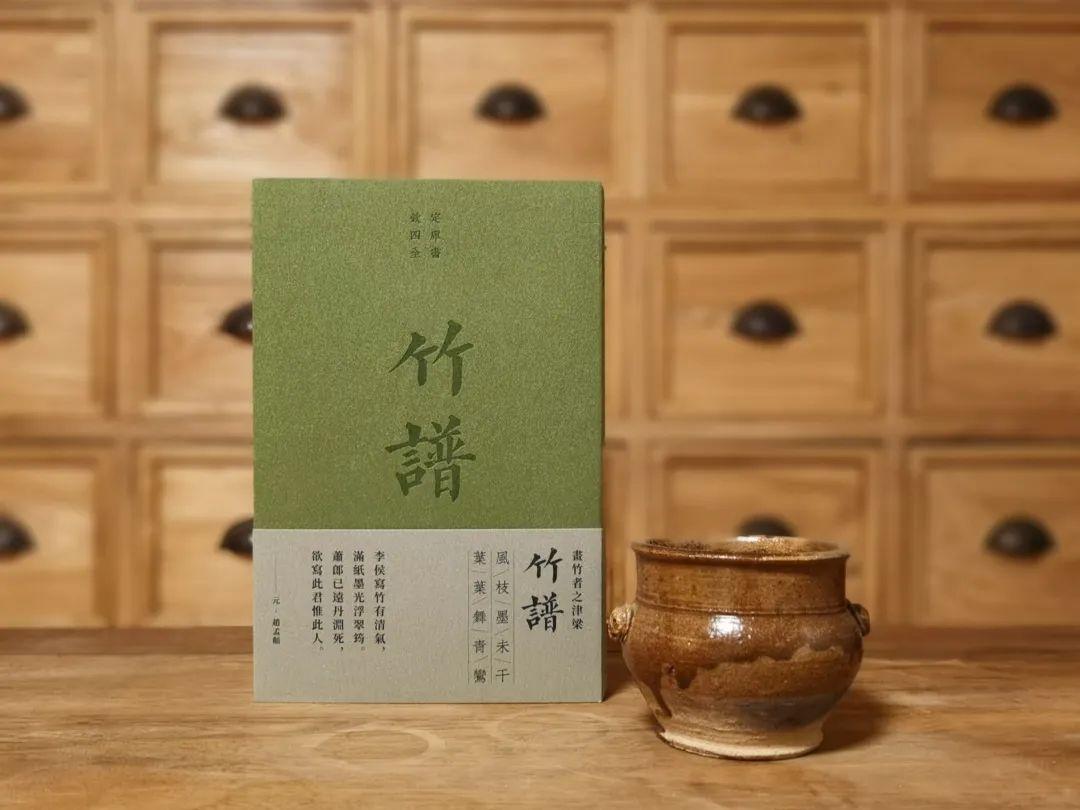 欽定
四庫
全書
竹譜
畫竹者之津梁
竹譜
風/枝/墨/未/干
葉/葉/舞/青/鸞
李侯寫竹有清氣,
滿紙墨光浮翠筠。
蕭郎已遠丹淵死,
欲寫此君惟此人。
——元·趙孟頫